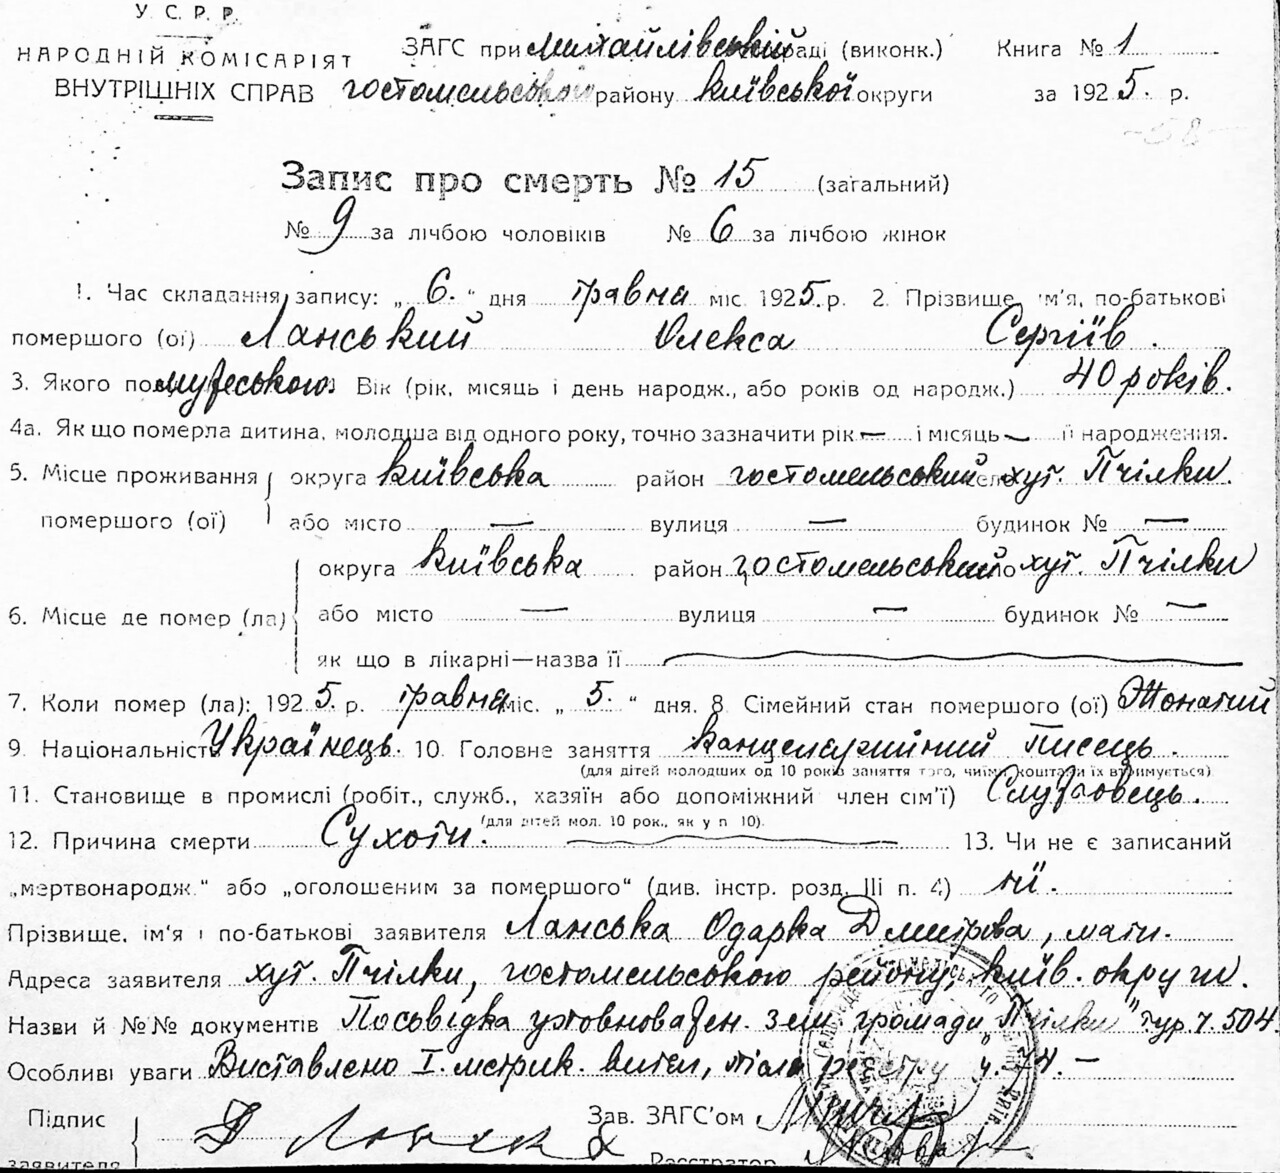 У. С. Р. Р.
НАРОДНІЙ КОМІСАРІЯТ
ВНУТРІШНІХ СПРАВ
ЗАГС при Михайлівській раді (виконк.) Книга № 1
гостомельського району київської округи за 1925. р.
Запис про смерть № 15 (загальний)
№ 9 за лічбою чоловіків № 6 за лічбою жінок
1. Час складання запису: „6.“ дня травня міс 1925. р. 2. Прізвище, ім'я, по-батькові
помершого (ої) Ланський Олекса Сергіїв.
3. Якого полу мужеського. Вік (рік, місяць і день народж., або років од народж.) 40 років.
4а. Як що померла дитина, молодша від одного року, точно зазначити рік — і місяць — її народження.
5. Місце проживання округа київська район гостомельський село хут. Пчілки.
помершого (ої) або місто — вулиця — будинок № —
округа київська район гостомельський село хут. Пчілки
6. Місце де помер (ла) або місто — вулиця — будинок № —
як що в лікарні—назва її
7. Коли помер (ла): 1925. р. травня міс. „5.“ дня. 8. Сімейний стан помершого (ої) Жонатий
9. Національність Українець. 10. Головне заняття канцелярийний писець.
(для дітей молодших од 10 років заняття того, чиїми коштами їх утримується)
11. Становище в промислі (робіт., служб., хазяїн або допоміжний член сім'ї) Службовець.
(для дітей мол. 10 рок., як у п 10).
12. Причина смерти Сухоти. 13. Чи не є записаний
„мертвонародж.“ або „оголошеним за помершого“ (див. інстр. розд. III п. 4) ні.
Прізвище, ім'я і по-батькові заявителя Ланська Одарка Дмитрова, мати.
Адреса заявителя хут. Пчілки, гостомельського району, київ. округи.
Назви й №№ документів Посьвідка уповноважен. зем. громади „Пчілки“ ч. 504
Особливі уваги Виставлено I. метрик. витяг, реєстру ч. 74. —
Підпис Зав. ЗАГС'ом
заявителя Реєстратор